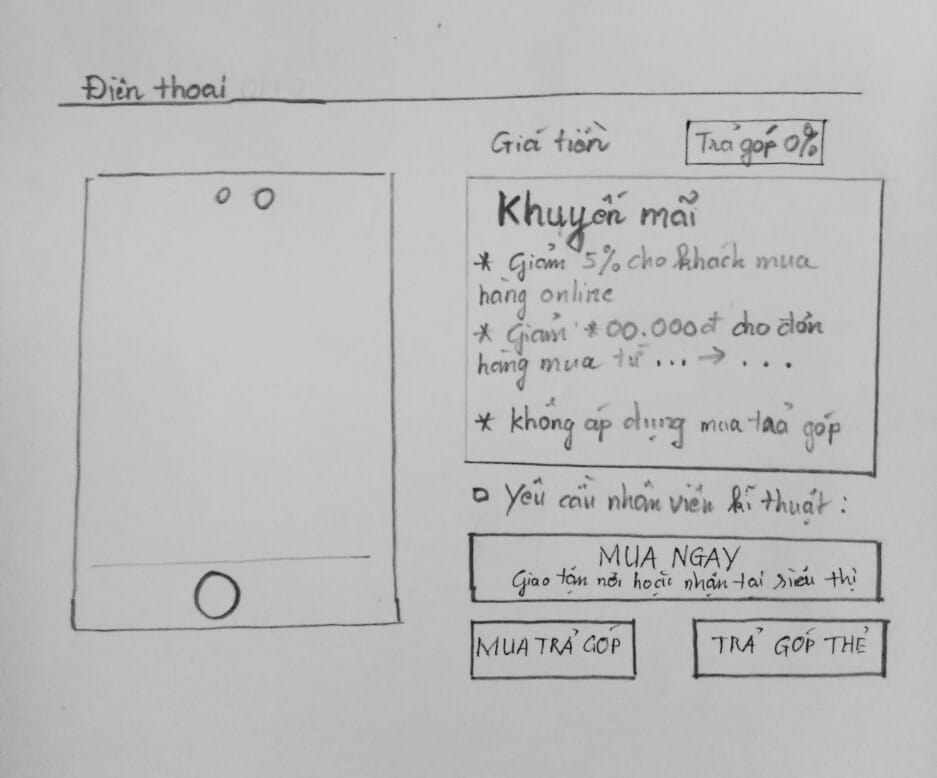 Điện thoại
Giá tiền
Trả góp 0%
Khuyến mãi
* Giảm 5% cho khách mua
hàng online
* Giảm *00.000đ cho đơn
hàng mua từ ... → ...
* Không áp dụng mua trả góp
Yêu cầu nhân viên kĩ thuật:
MUA NGAY
Giao tận nơi hoặc nhận tại siêu thị
MUA TRẢ GÓP
TRẢ GÓP THẺ